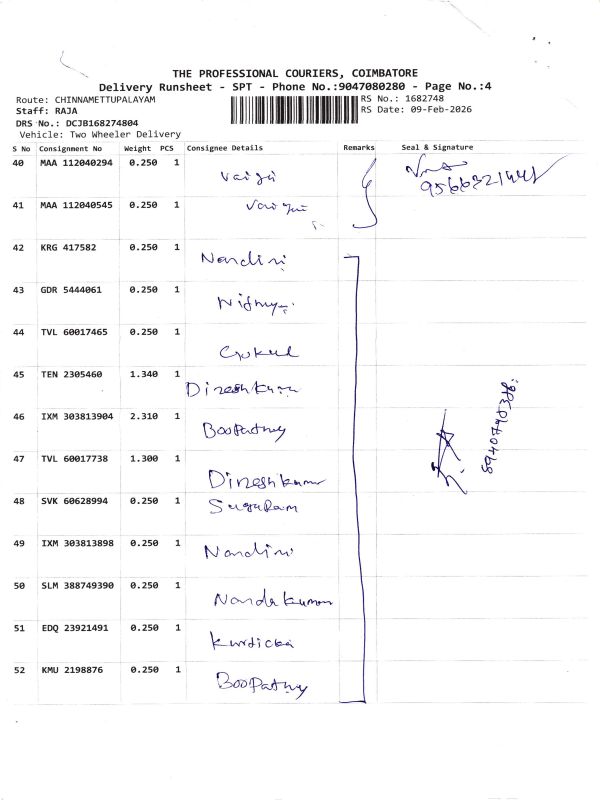 THE PROFESSIONAL COURIERS, COIMBATORE
Delivery Runsheet - SPT - Phone No.:9047080280 - Page No.:4
Route: CHINNAMETTUPALAYAM RS No.: 1682748
Staff: RAJA RS Date: 09-Feb-2026
DRS No.: DCJB168274804
Vehicle: Two Wheeler Delivery
S No Consignment No Weight PCS Consignee Details Remarks Seal & Signature
40 MAA 112040294 0.250 1 Vaigai
41 MAA 112040545 0.250 1
42 KRG 417582 0.250 1 Nandini
43 GDR 5444061 0.250 1
44 TVL 60017465 0.250 1 Gokul
45 TEN 2305460 1.340 1 Dineshkumar
46 IXM 303813904 2.310 1 Boopathy
47 TVL 60017738 1.300 1 Dineshkumar
48 SVK 60628994 0.250 1 Sugaram
49 IXM 303813898 0.250 1 Nandini
50 SLM 388749390 0.250 1 Nandakumar
51 EDQ 23921491 0.250 1
52 KMU 2198876 0.250 1 Boopathy